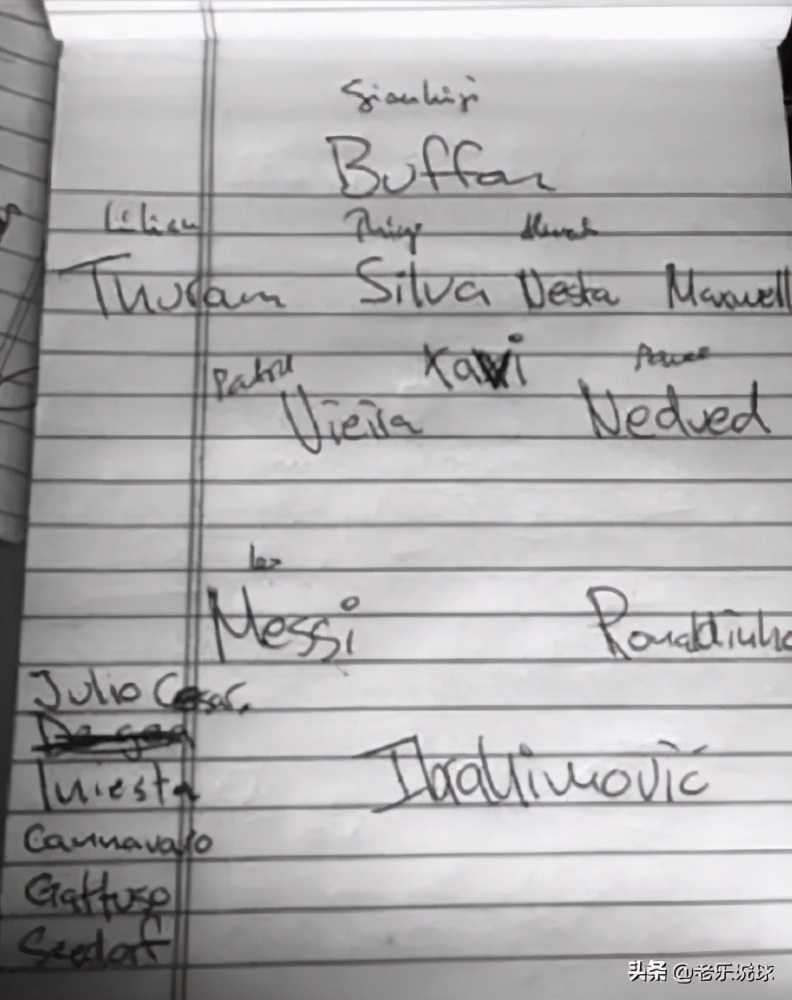 Gianluigi
Buffon
Lilian
Thuram Silva Nesta Maxwell
Xavi
Patrick
Vieira Nedved
Leo
Messi Ronaldinho
Julio Cesar.
De gea
Iniesta Ibrahimović
Cannavaro
Gattuso
Seedorf
头条 @老乐说球